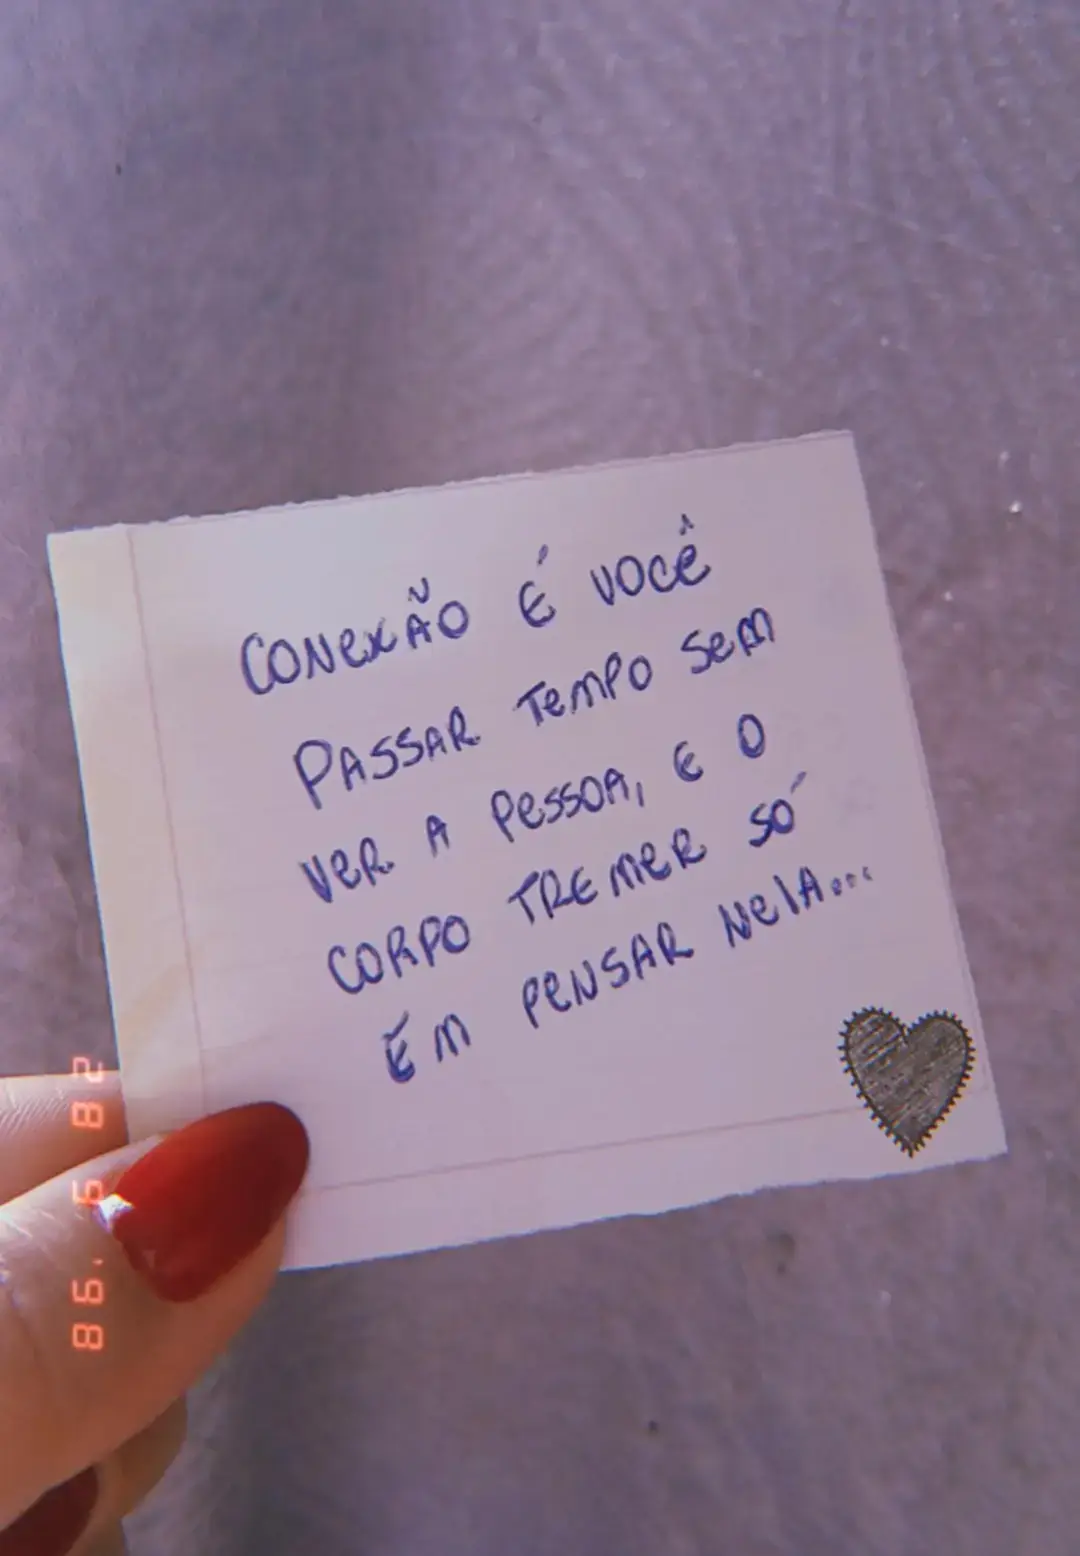 CONEXÃO É VOCÊ
PASSAR TEMPO SEM
VER A PESSOA, E O
CORPO TREMER SÓ
EM PENSAR NELA...
86. 6 82